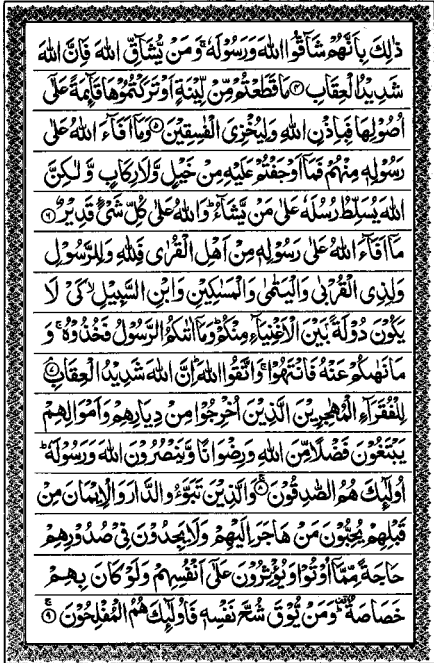 ذٰلِكَ بِاَنَّهُمْ شَآقُّوا اللهَ وَرَسُوْلَهٗ ۚ وَمَنْ يُّشَآقِّ اللهَ فَاِنَّ اللهَ
شَدِيْدُ الْعِقَابِ ۝۴ مَا قَطَعْتُمْ مِّنْ لِّيْنَةٍ اَوْ تَرَكْتُمُوْهَا قَآئِمَةً عَلٰٓى
اُصُوْلِهَا فَبِاِذْنِ اللهِ وَلِيُخْزِىَ الْفٰسِقِيْنَ ۝۵ وَمَآ اَفَآءَ اللهُ عَلٰى
رَسُوْلِهٖ مِنْهُمْ فَمَآ اَوْجَفْتُمْ عَلَيْهِ مِنْ خَيْلٍ وَّلَا رِكَابٍ وَّلٰكِنَّ
اللهَ يُسَلِّطُ رُسُلَهٗ عَلٰى مَنْ يَّشَآءُ ؕ وَاللهُ عَلٰى كُلِّ شَىْءٍ قَدِيْرٌ ۝۶
مَآ اَفَآءَ اللهُ عَلٰى رَسُوْلِهٖ مِنْ اَهْلِ الْقُرٰى فَلِلّٰهِ وَلِلرَّسُوْلِ
وَلِذِى الْقُرْبٰى وَالْيَتٰمٰى وَالْمَسٰكِيْنِ وَابْنِ السَّبِيْلِ ۙ كَىْ لَا
يَكُوْنَ دُوْلَةًۢ بَيْنَ الْاَغْنِيَآءِ مِنْكُمْ ؕ وَمَآ اٰتٰىكُمُ الرَّسُوْلُ فَخُذُوْهُ ۚ وَ
مَا نَهٰىكُمْ عَنْهُ فَانْتَهُوْا ۚ وَاتَّقُوا اللهَ ؕ اِنَّ اللهَ شَدِيْدُ الْعِقَابِ ۝۷
لِلْفُقَرَآءِ الْمُهٰجِرِيْنَ الَّذِيْنَ اُخْرِجُوْا مِنْ دِيَارِهِمْ وَاَمْوَالِهِمْ
يَبْتَغُوْنَ فَضْلًا مِّنَ اللهِ وَرِضْوَانًا وَّيَنْصُرُوْنَ اللهَ وَرَسُوْلَهٗ ؕ
اُولٰٓئِكَ هُمُ الصّٰدِقُوْنَ ۝۸ وَالَّذِيْنَ تَبَوَّؤُ الدَّارَ وَالْاِيْمَانَ مِنْ
قَبْلِهِمْ يُحِبُّوْنَ مَنْ هَاجَرَ اِلَيْهِمْ وَلَا يَجِدُوْنَ فِىْ صُدُوْرِهِمْ
حَاجَةً مِّمَّآ اُوْتُوْا وَيُؤْثِرُوْنَ عَلٰٓى اَنْفُسِهِمْ وَلَوْ كَانَ بِهِمْ
خَصَاصَةٌ ؕ وَمَنْ يُّوْقَ شُحَّ نَفْسِهٖ فَاُولٰٓئِكَ هُمُ الْمُفْلِحُوْنَ ۝۹